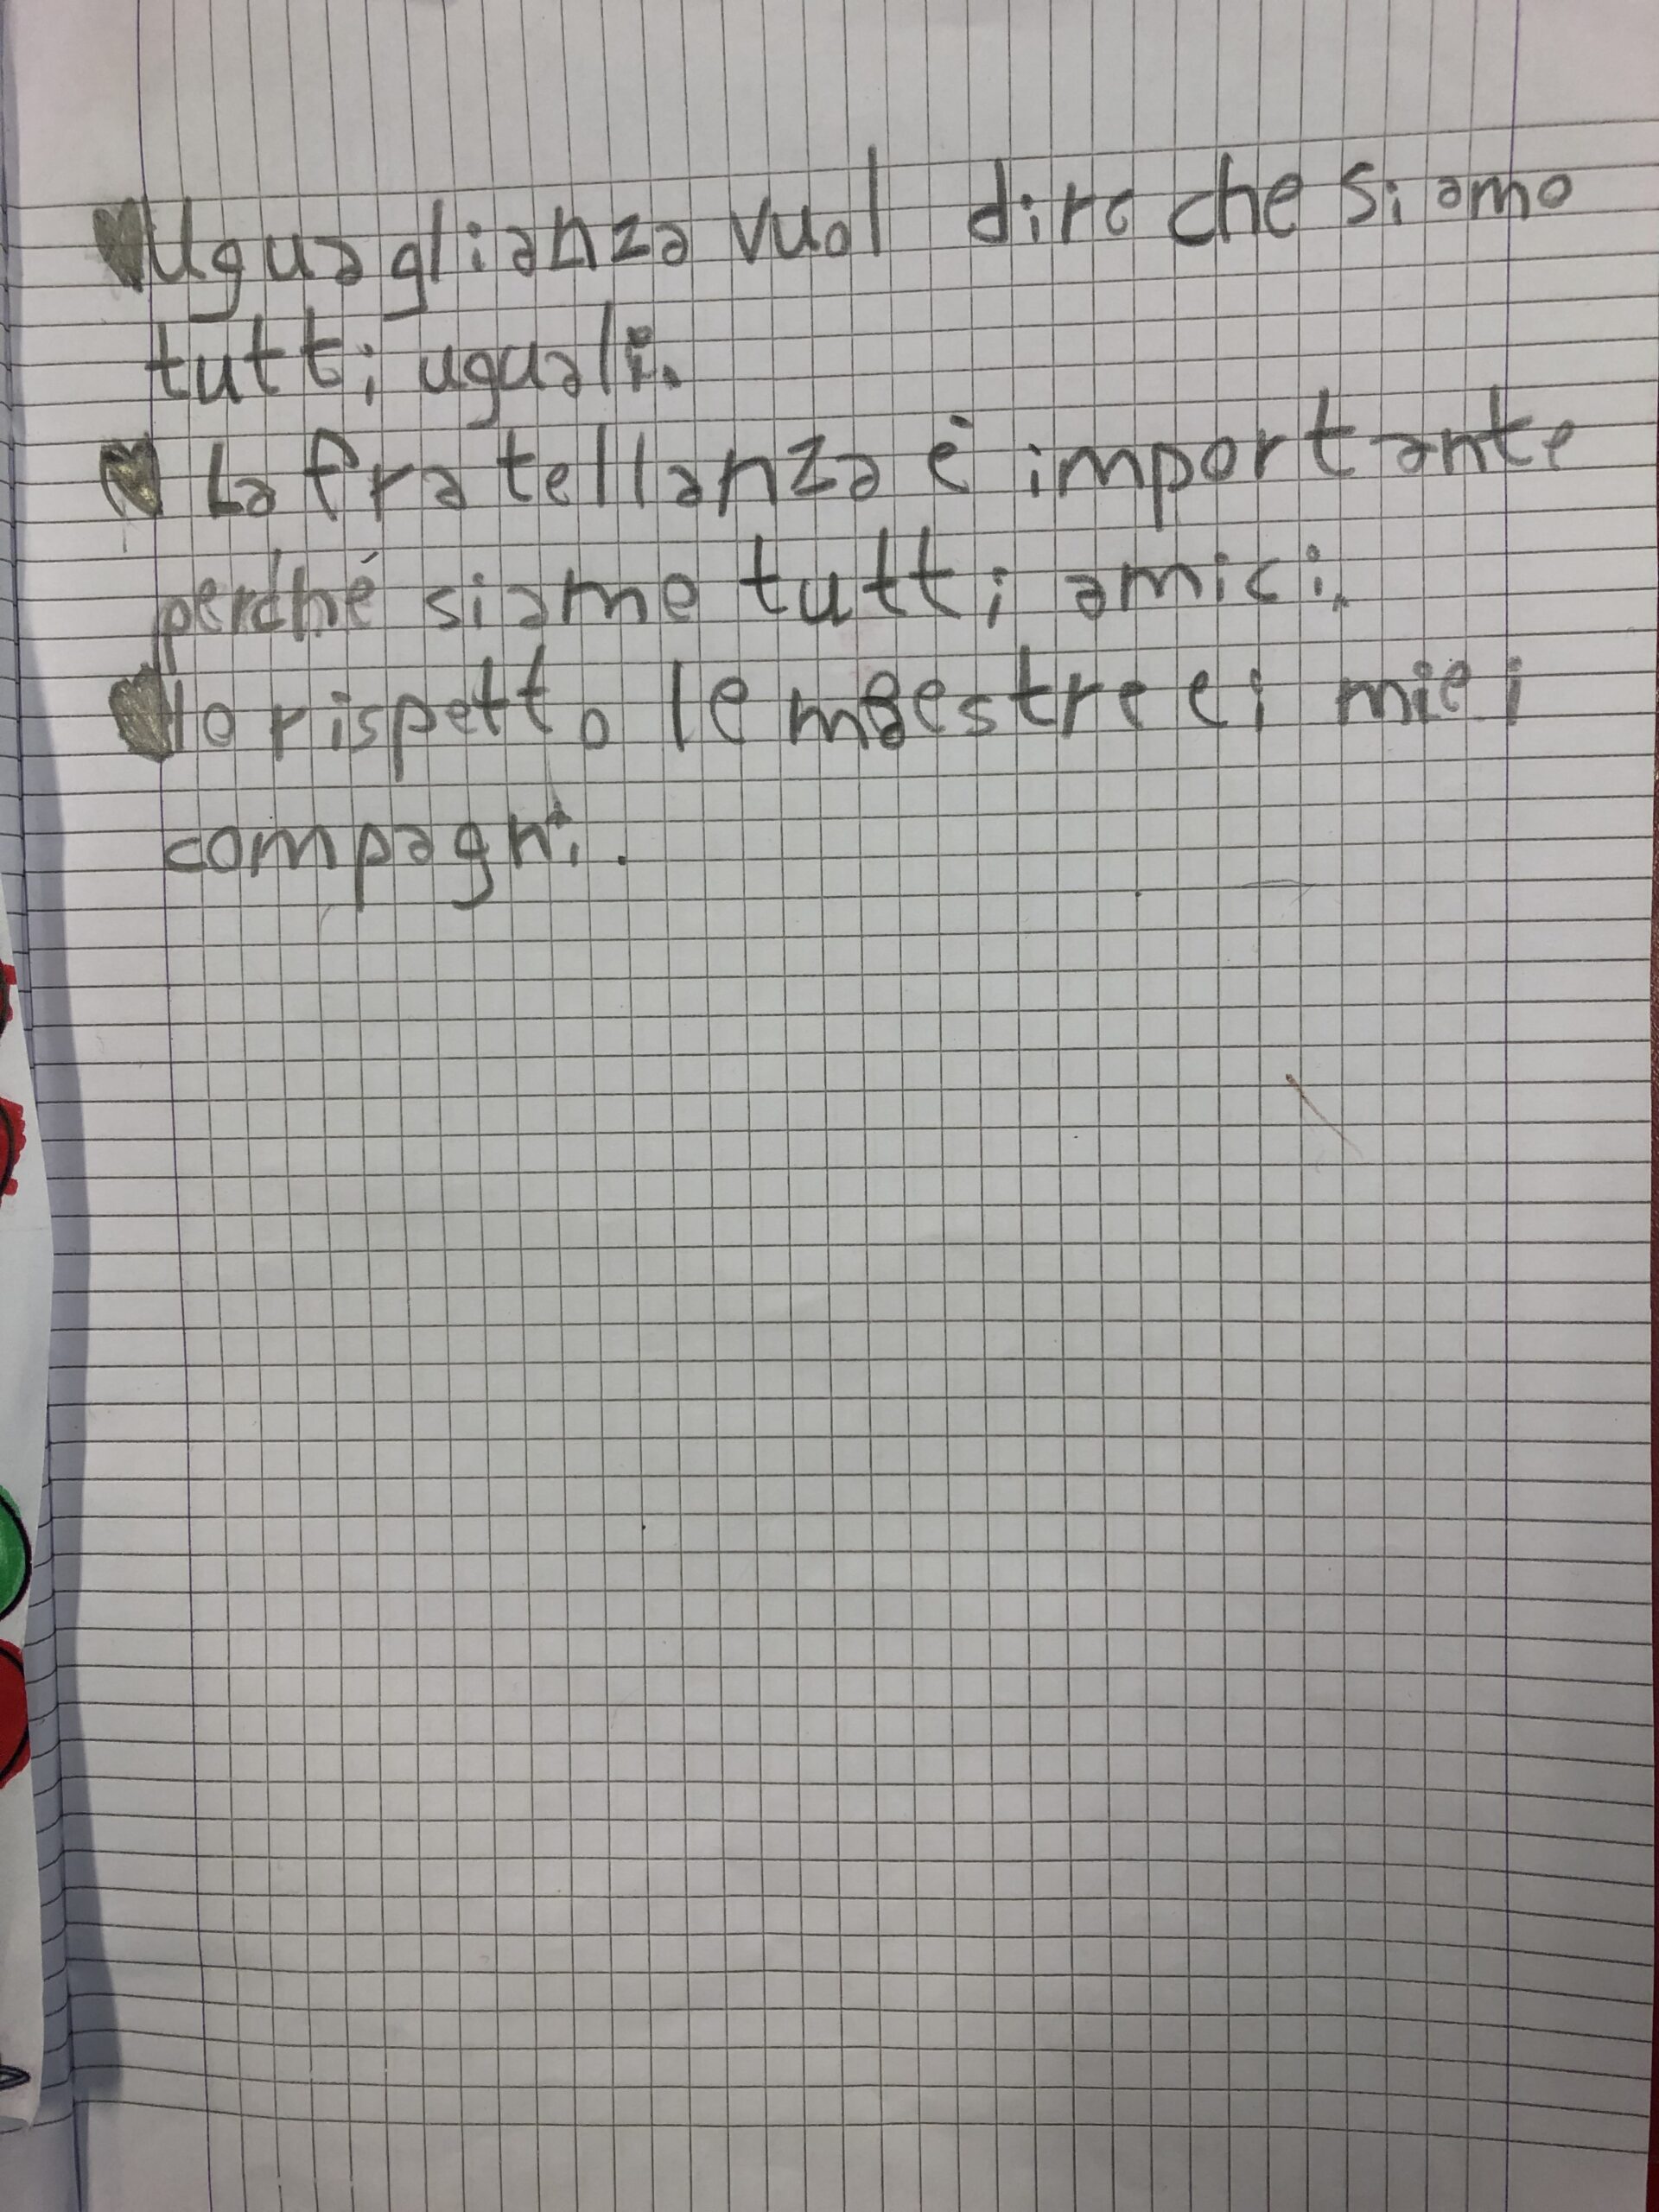 Uguaglianza vuol dire che siamo
tutti uguali.
La fratellanza è importante
perché siamo tutti amici.
Io rispetto le maestre e i miei
compagni.